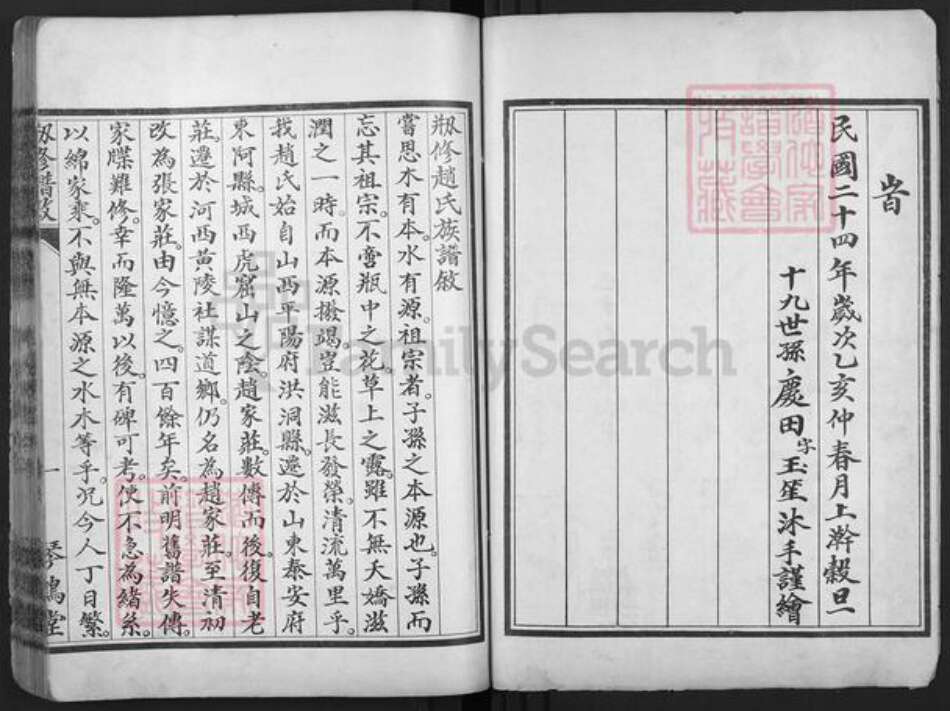 旹
民國二十四年歲次乙亥仲春月上澣穀旦
十九世孫慶田字玉笙沐手謹繪
剏修趙氏族譜敘
嘗思木有本。水有源。祖宗者。子孫之本源也。子孫而
忘其祖宗。不啻瓶中之花。草上之露。雖不無夭嬌滋
潤之一時。而本源撥竭。豈能滋長發榮。清流萬里乎。
我趙氏始自山西平陽府洪洞縣。遷於山東泰安府
東阿縣。城西虎窟山之陰。趙家莊。數傳而後。復自老
莊。遷於河西黃陵社謀道鄉。仍名為趙家莊。至清初
改為張家莊。由今憶之。四百餘年矣。前明舊譜失傳。
家牒難修。幸而隆萬以後。有碑可考。使不急為緒糸。
以綿家乘。不與無本源之水木等乎。况今人丁日繁。
剏修譜敘
一
琴鶴堂
FamilySearch